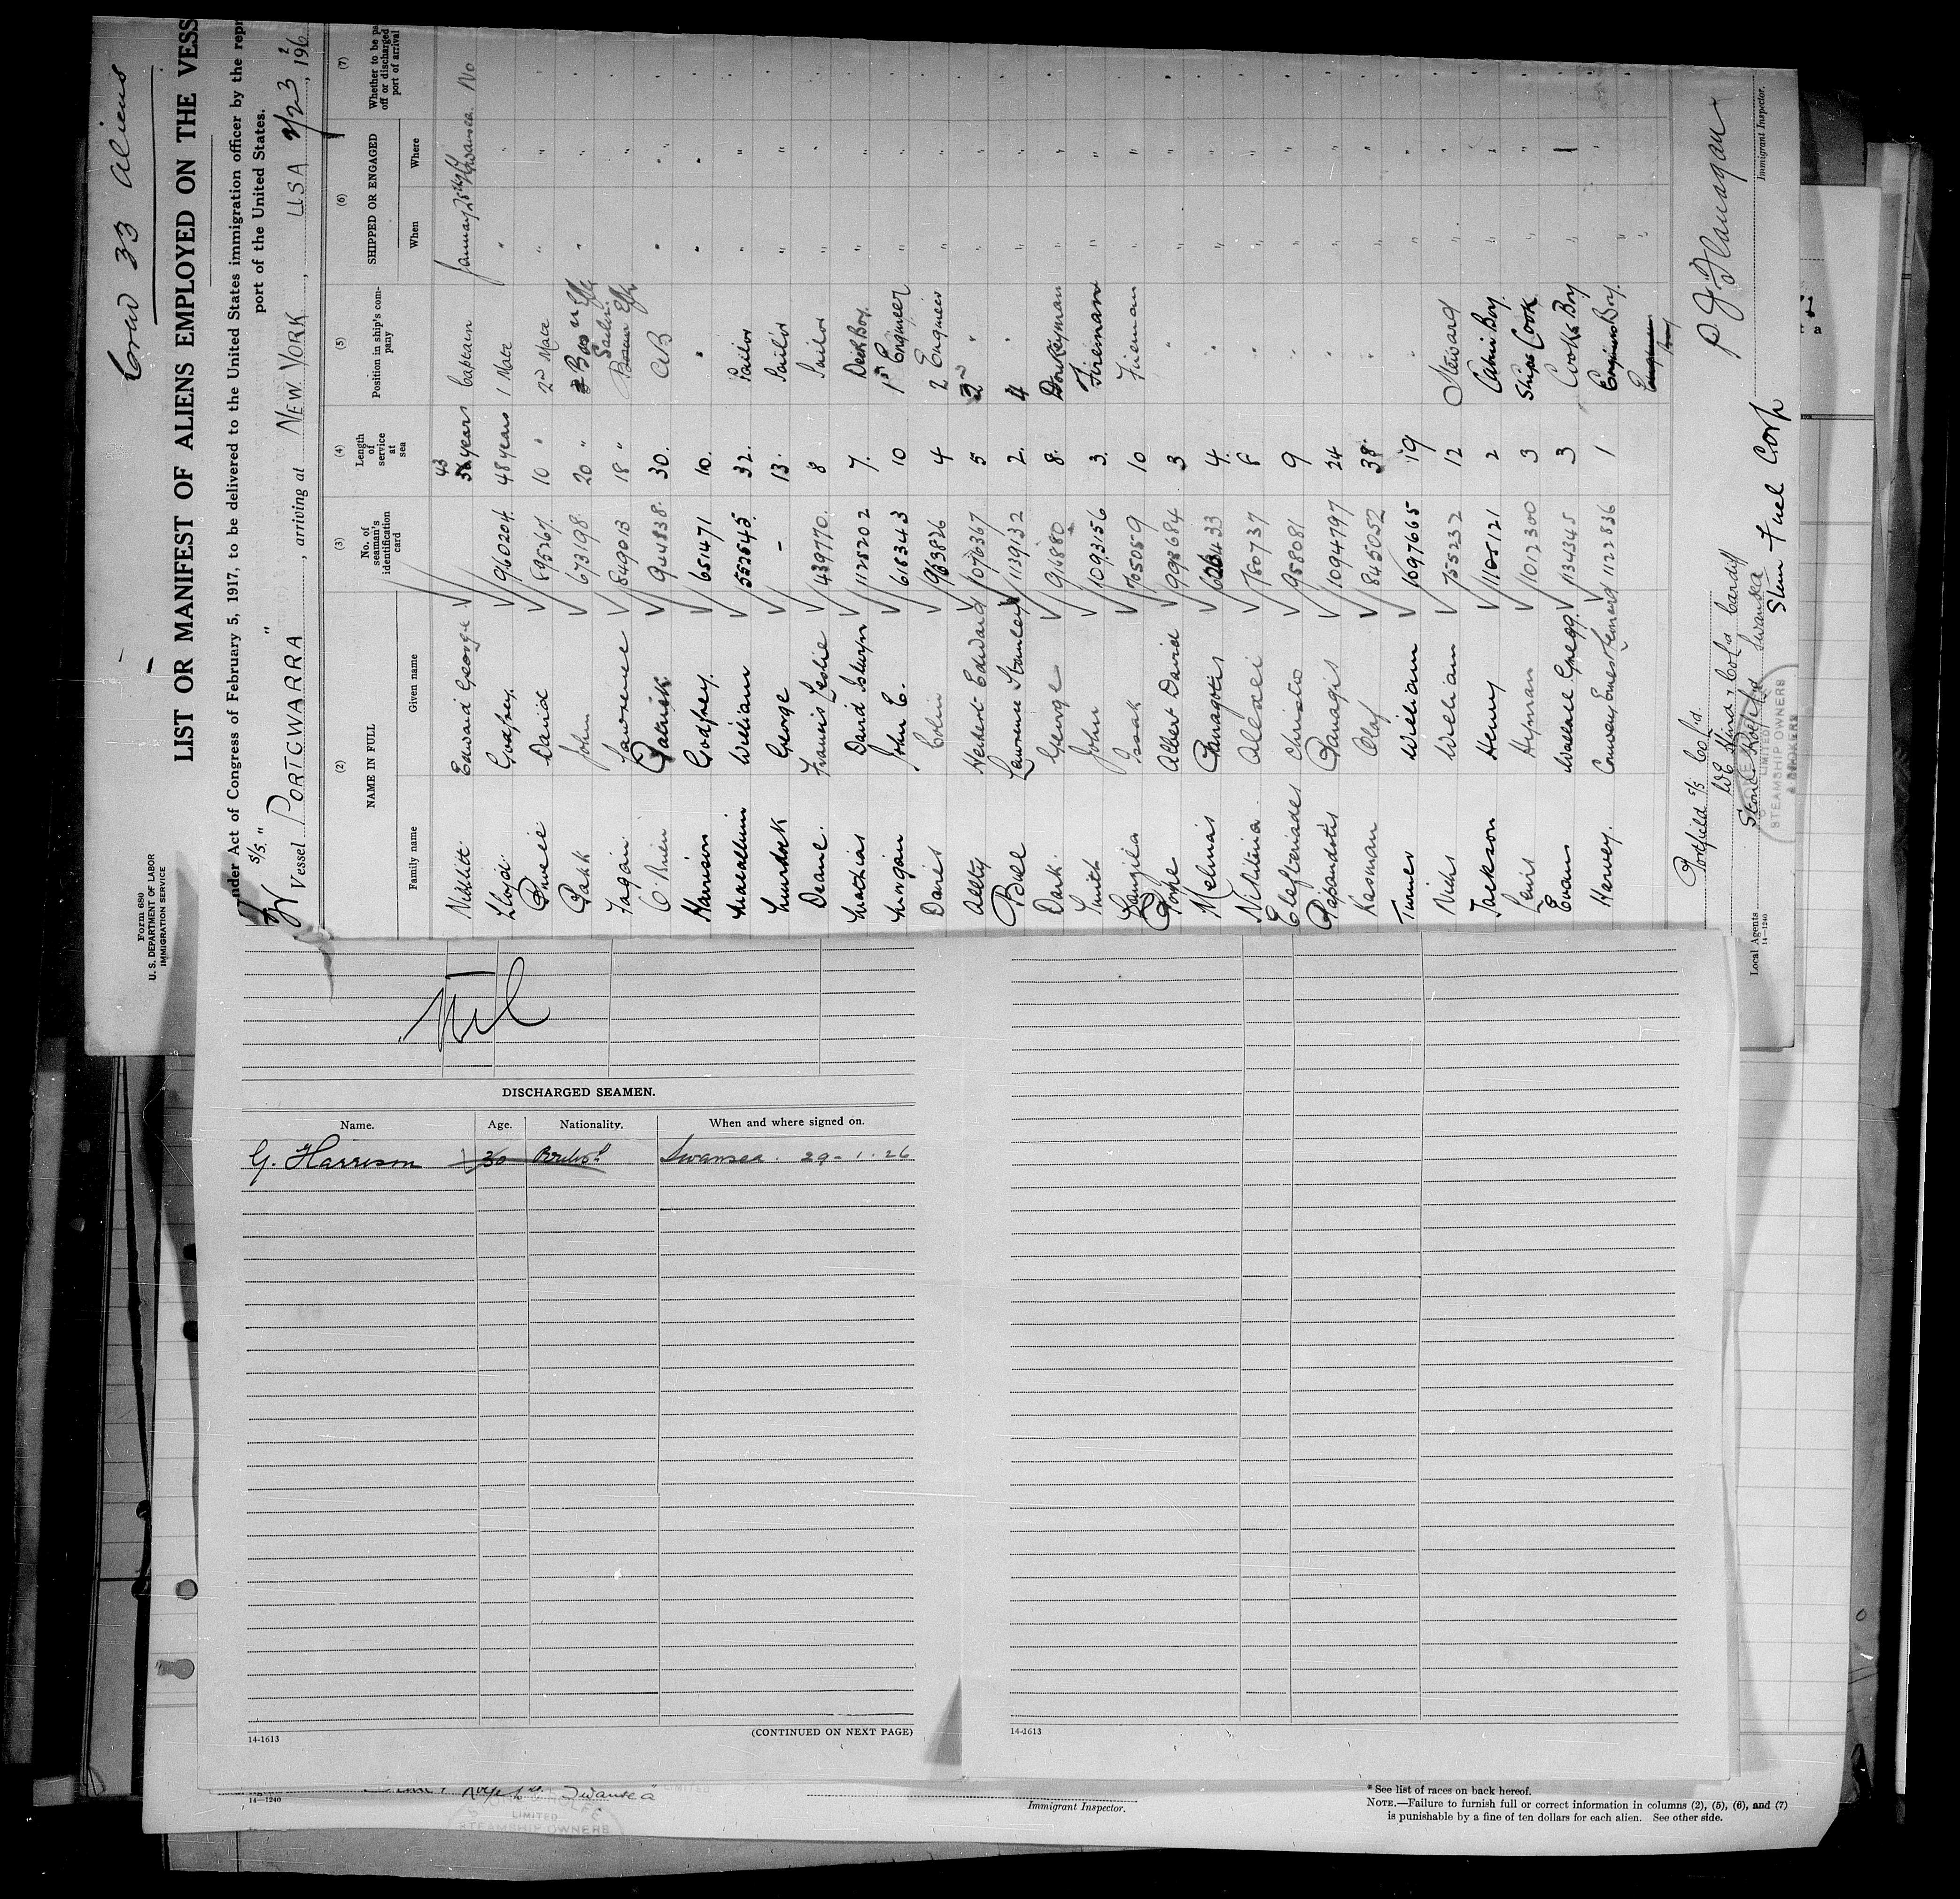 Crew 33 aliens
Form 680
U. S. DEPARTMENT OF LABOR
IMMIGRATION SERVICE
LIST OR MANIFEST OF ALIENS EMPLOYED ON THE VESS
Under Act of Congress of February 5, 1917, to be delivered to the United States immigration officer by the repr
port of the United States.
S/S "
Vessel PORTGWARRA " , arriving at NEW YORK , USA 2/23 , 1926
(2) (3) (4) (5) (6) (7)
NAME IN FULL No. of seaman's identification card Length of service at sea Position in ship's company SHIPPED OR ENGAGED Whether to be pa off or discharged port of arrival
Family name Given name When Where
Edward George 43 years Captain January 25th Swansea No
Lloyd Godfrey 960204 48 years 1 Mate " " "
David 895267 10 " 2nd Mate " " "
John 673198 20 " " "
Fagan Lawrence 849013 18 " "
O'Brien Patrick 30 AB " "
Harrison Godfrey 651471 10 " " "
Macallum William 552545 32 Sailor " "
Murdock George - 13 Sailor " "
Deane Francis Leslie 439770 8 Sailor " "
Mathias David 1125202 7 Deck Boy " "
Morgan John E. 618343 10 1st Engineer " "
Davies Colin 963826 4 2 Engineer " "
Herbert Edward 1076367 5 " " "
Lawrence Stanley 1139132 2 4 " "
Dark George 916880 8 Donkeyman " "
Smith John 1093156 3 Fireman " "
Isaak 1050509 10 Fireman " "
Albert David 998684 3 " " "
Melinas Panagotis 4 " " "
Alexei 780737 8 " " "
Eleftheriades Christo 958081 9 " " "
Panagis 1094797 24 " " "
Kasman Olaf 845052 38 " " "
Turner William 1097665 19 " " "
William 755232 12 Steward " "
Jackson Henry 1105121 2 Cabin Boy " "
Hyman 1102300 3 Ships Cook " "
Evans Wallace Gregg 1134345 3 Cooks Boy "
Harvey 1122836 1 " "
Portfield S/S Co Ld.
Cardiff
Swansea
Stem Fuel Corp
LIMITED
STEAMSHIP OWNERS
& BROKERS
Local Agents
14—1240
P J Flanagan
Immigrant Inspector.
Nil
DISCHARGED SEAMEN.
Name. Age. Nationality. When and where signed on.
G. Harrison 30 British Swansea . 29 - 1 . 26
14-1613 (CONTINUED ON NEXT PAGE)
14-1613
Swansea
14—1240
LIMITED
STEAMSHIP OWNERS
Immigrant Inspector.
* See list of races on back hereof.
NOTE.—Failure to furnish full or correct information in columns (2), (5), (6), and (7)
is punishable by a fine of ten dollars for each alien. See other side.